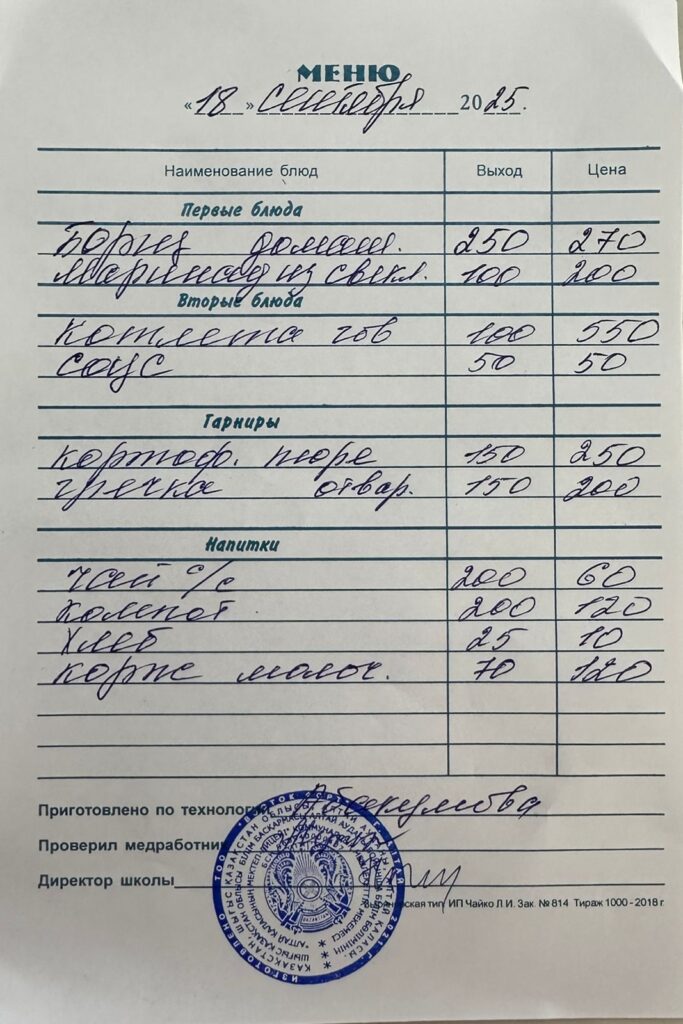 МЕНЮ
« 18 » сентября 2025.
Наименование блюд Выход Цена
Первые блюда
Борщ домаш. 250 270
Маринад из свекл. 100 200
Вторые блюда
Котлета гов 100 550
Соус 50 50
Гарниры
картоф. пюре 150 250
гречка отвар. 150 200
Напитки
чай с/с 200 60
Компот 200 120
Хлеб 25 10
корж молоч. 70 120
Приготовлено по технологии Абакумова
Проверил медработник
Директор школы
тип. ИП Чайко Л.И. Зак. №814 Тираж 1000 - 2018 г.